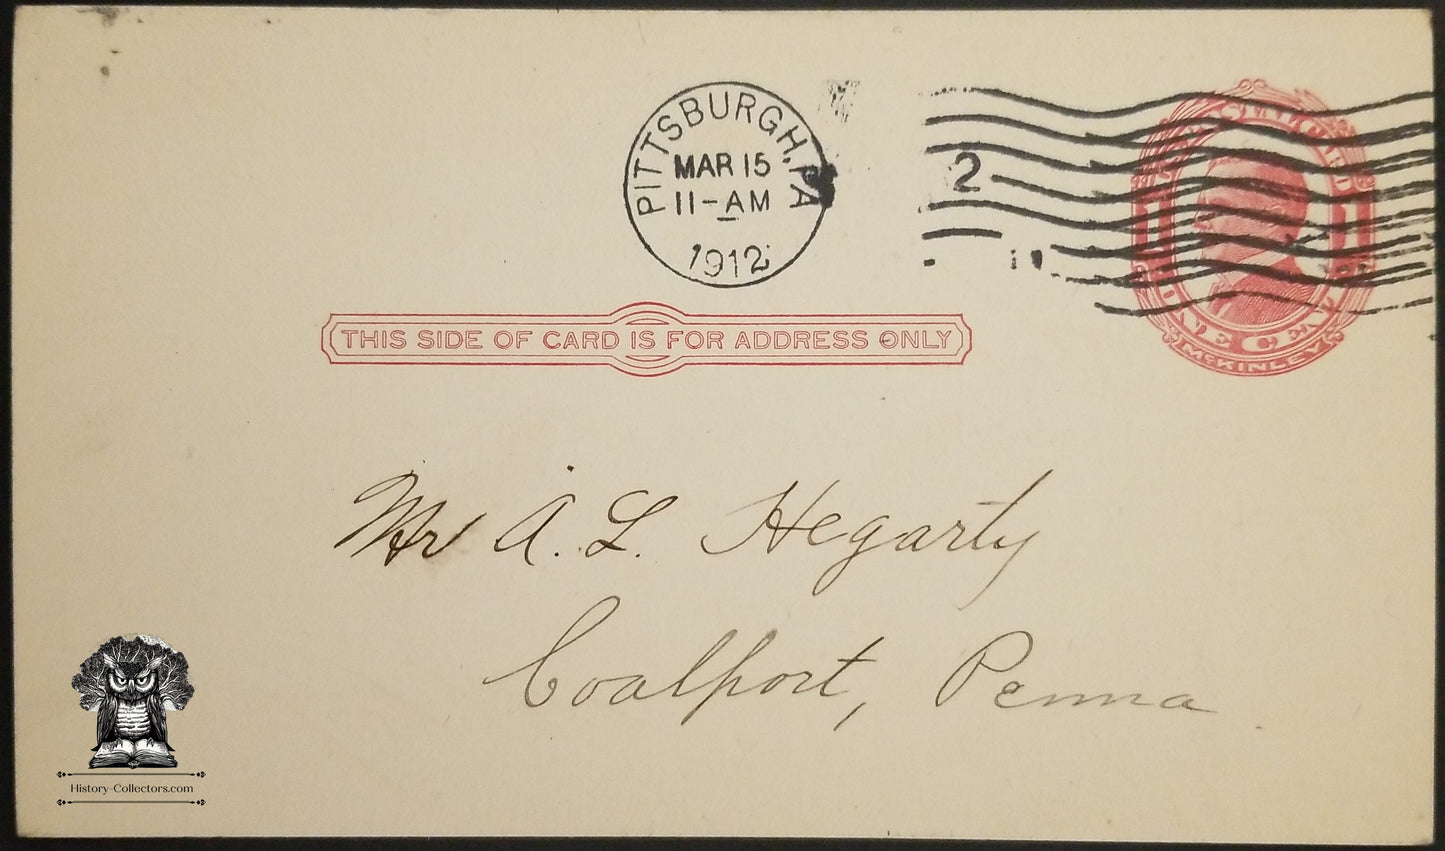 PITTSBURGH, PA
MAR 15
11-AM
1912
2
U.S. POSTAL CARD
1 1
ONE CENT
McKINLEY
THIS SIDE OF CARD IS FOR ADDRESS ONLY
Mr A. L. Hegarty
Coalport, Penna
History-Collectors.com